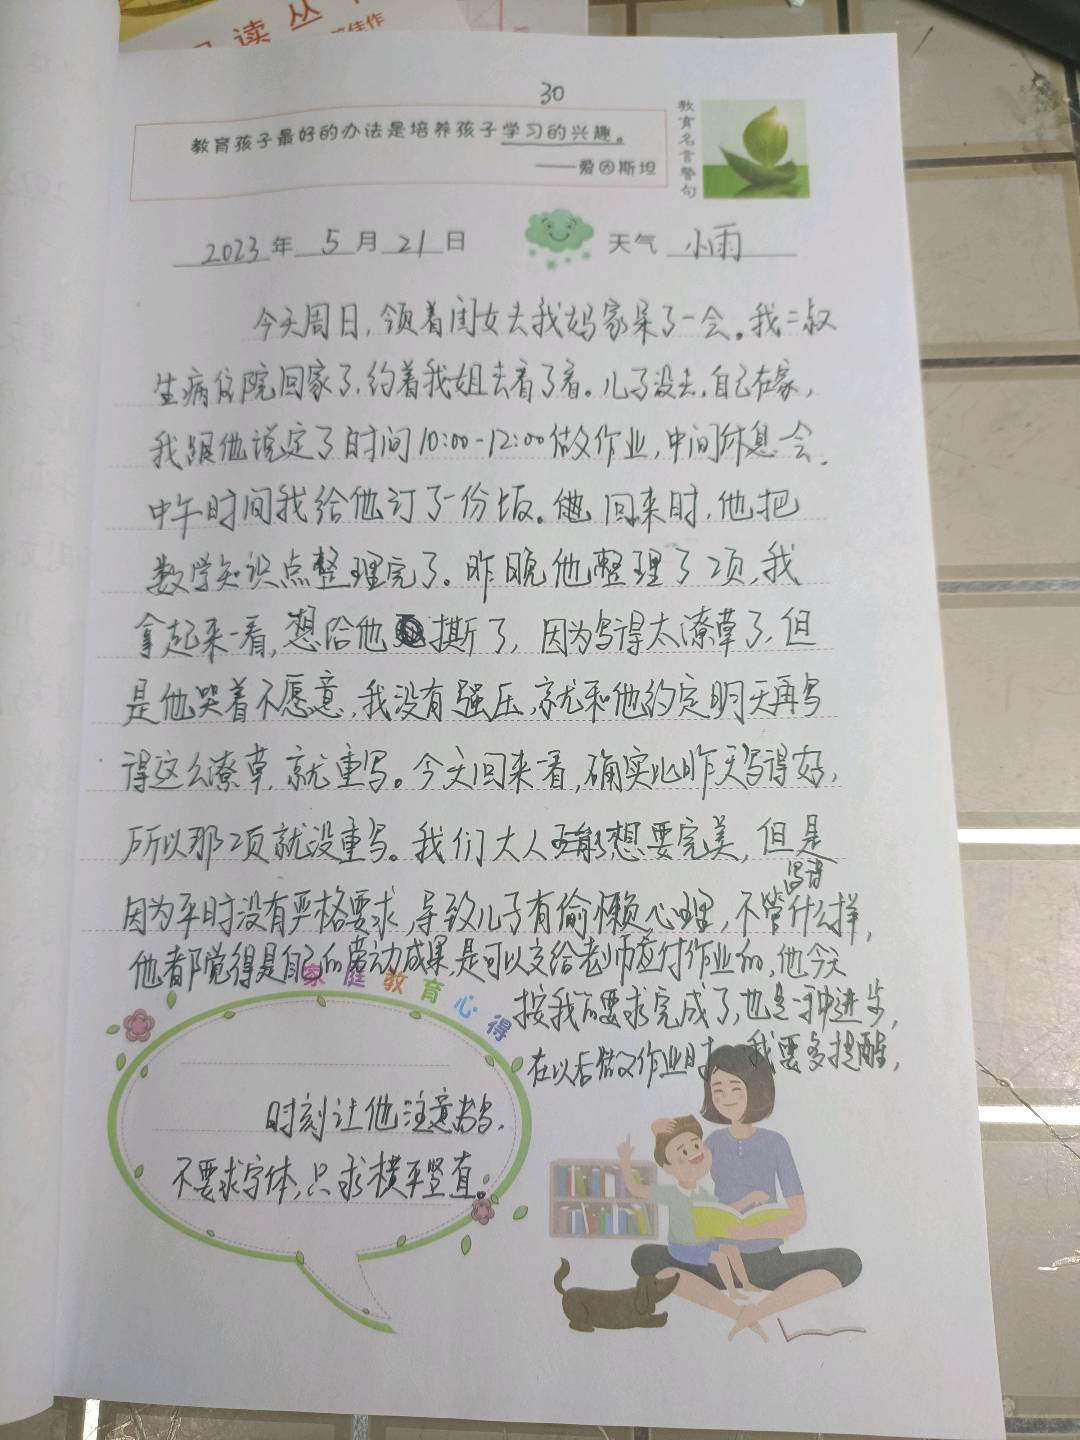 读丛
佳作
30
教育孩子最好的办法是培养孩子学习的兴趣。
——爱因斯坦
教育名言警句
2023年5月21日 天气 小雨
今天周日,领着闺女去我妈家呆了一会。我二叔
生病住院回家了,约着我姐去看了看。儿子没去,自己在家,
我跟他说定了时间10:00-12:00做作业,中间休息一会,
中午时间我给他订了一份饭。他 回来时,他把
数学知识点整理完了。昨晚他整理了2项,我
拿起来一看,想给他撕了,因为写得太潦草了,但
是他哭着不愿意,我没有强压,就和他约定明天再写
得这么潦草,就重写。今天回来一看,确实比昨天写得好,
所以那2项就没重写。我们大人可能想要完美,但是
因为平时没有严格要求,导致儿子有偷懒心理,不管写得什么样,
他都觉得是自己的劳动成果,是可以交给老师应付作业的,他今天
家庭教育心得
按我的要求完成了,也是一种进步,
在以后做作业时,我要多提醒,
时刻让他注意书写,
不要求字体,只求横平竖直。